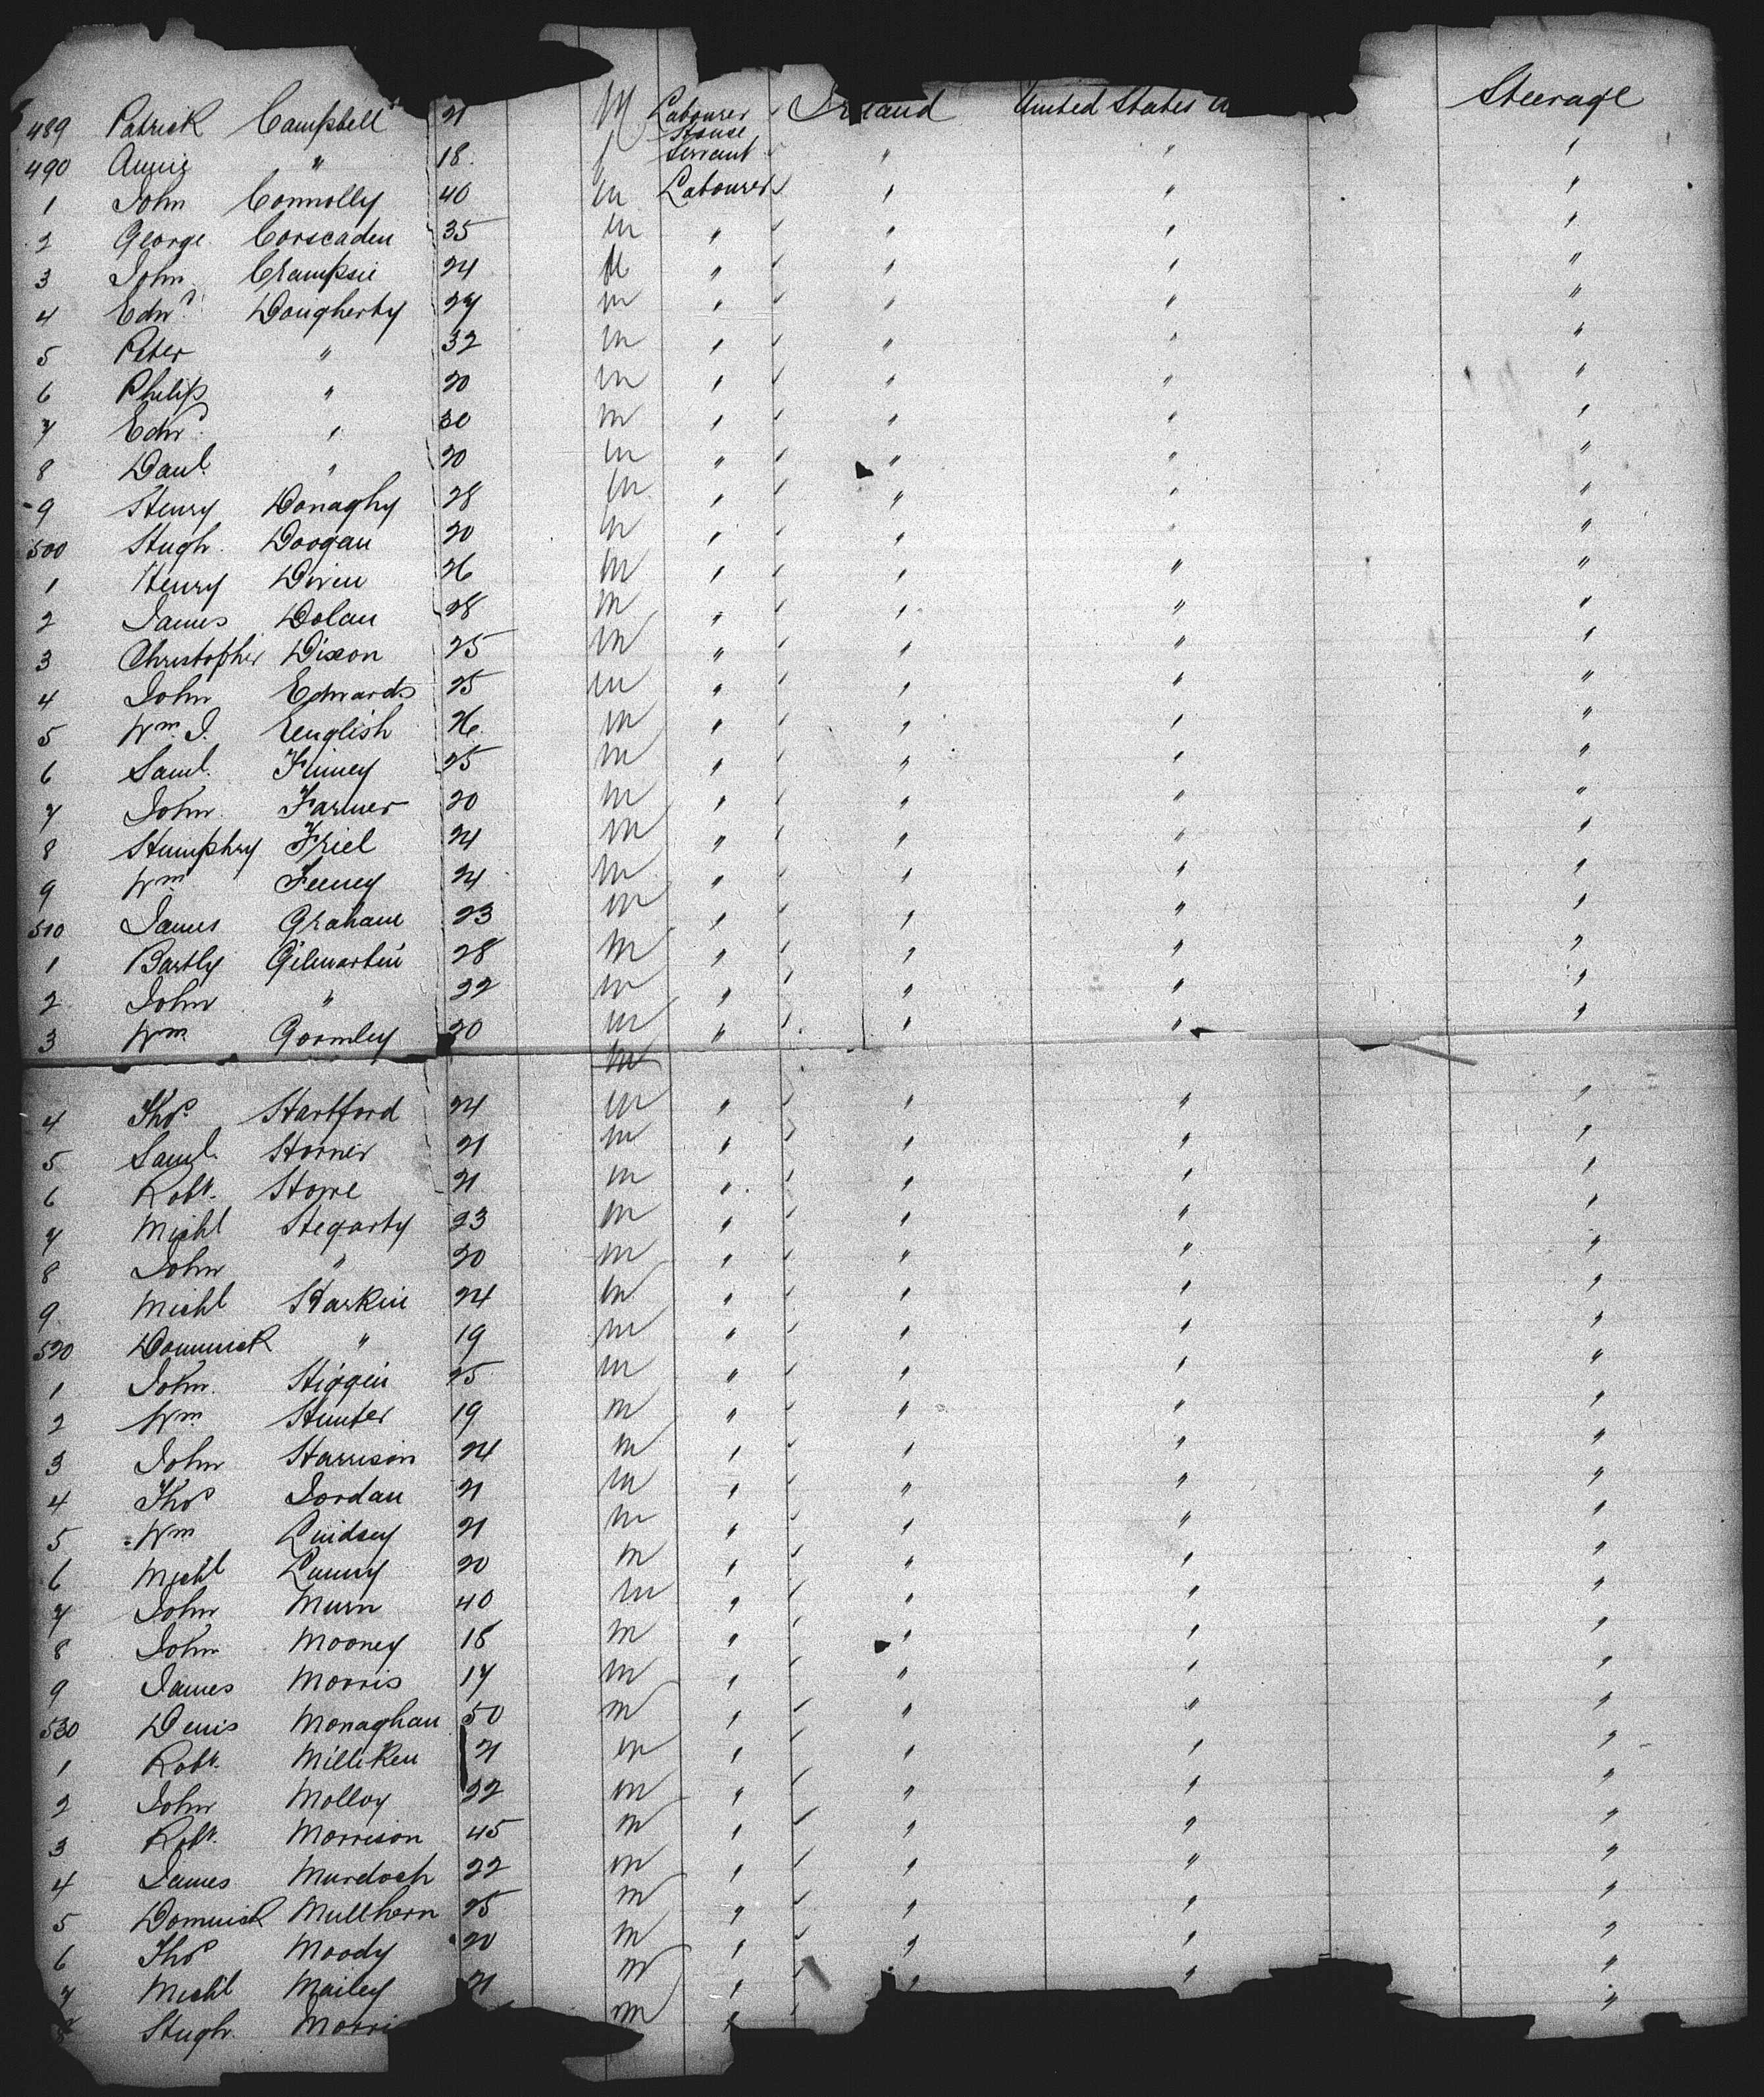 489 Patrick Campbell 21 M Labourer Ireland United States Steerage
490 Annie " 18 f House Servant " " "
1 John Connolly 40 m Labourer " " "
2 George Corscaden 35 m " " " "
3 John Crampsie 24 M " " " "
4 Edwd. Dougherty 24 m " " " "
5 Peter " 32 m " " " "
6 Philip " 20 m " " " "
7 Edwd. " 30 m " " " "
8 Danl. " 20 m " " " "
9 Henry Donaghy 28 m " " " "
500 Hugh Doogan 20 m " " " "
1 Henry Diven 26 m " " " "
2 James Dolan 28 m " " " "
3 Christopher Dixon 25 m " " " "
4 John Edwards 25 m " " " "
5 Wm. J. English 26 m " " " "
6 Saml. Finney 25 m " " " "
7 John Farmer 20 m " " " "
8 Humphry Friel 24 m " " " "
9 Wm. Feeney 24 m " " " "
510 James Graham 23 m " " " "
1 Bartly Gilmartin 28 m " " " "
2 John " 22 m " " " "
3 Wm. Gormley 20 m " " " "
m
4 Thos. Hartford 24 m " " " "
5 Saml. Horner 21 m " " " "
6 Robt. Howe 21 m " " " "
7 Michl Hegarty 23 m " " " "
8 John " 20 m " " " "
9 Michl Harkin 24 m " " " "
520 Dominick " 19 m " " " "
1 John Higgin 25 m " " " "
2 Wm. Hunter 19 m " " " "
3 John Harrison 24 m " " " "
4 Thos Jordan 21 m " " " "
5 Wm Lindsey 21 m " " " "
6 Michl Lunny 20 m " " " "
7 John Murn 40 m " " " "
8 John Mooney 18 m " " " "
9 James Morris 17 m " " " "
530 Denis Monaghan 50 m " " " "
1 Robt. Milliken 21 m " " " "
2 John Molloy 22 m " " " "
3 Robt. Morrison 45 m " " " "
4 James Murdoch 22 m " " " "
5 Dominick Mullhern 25 m " " " "
6 Thos Moody 20 m " " " "
7 Michl Mailey 21 m " " " "
8 Hugh Morri m " "